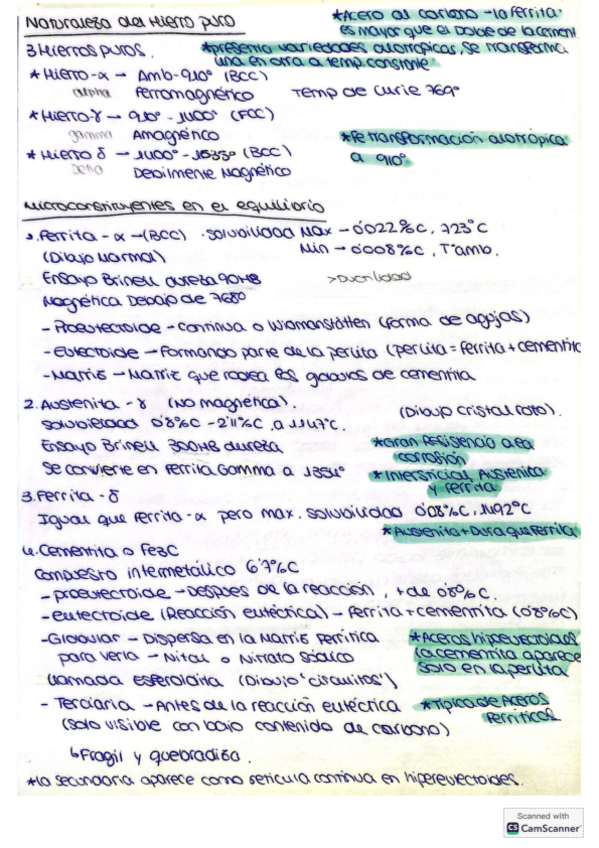 Naturaleza del Hierro puro
*Acero al carbono → la ferrita
es mayor que el Doble de la cement.
3 Hierros puros.
*presenta variedades alotrópicas, se transforma
una en otra a temp. constante
* Hierro-α → Amb-910° (BCC)
alpha Ferromagnético Temp de Curie 769°
* Hierro γ → 910° - 1400° (FCC)
gamma Amagnético
*Fe transformación alotrópica
a 910°
* Hierro δ → 1400° - 1535° (BCC)
Delta Debilmente Magnético
Microconstituyentes en el equilibrio
1. Ferrita-α → (BCC) · Solubilidad Max → 0'022%C, 723°C
Min → 0'008%C, Tªamb.
(Dibujo Normal)
Ensayo Brinell dureza 90HB >Ductilidad
Magnética Debajo de 768º
- Proeutectoide → continua o Widmanstätten (forma de agujas)
- Eutectoide → Formando parte de la perlita (perlita = ferrita + cementita
- Matriz → Matriz que rodea los glóbulos de cementita
2. Austenita - γ (No magnética). (Dibujo cristal roto).
Solubilidad 0'8%C - 2'11%C a 1147°C.
Ensayo Brinell 300HB dureza
*Gran Resistencia a la
corrosión
Se convierte en Ferrita Gamma a 1394°
*Intersticial Austenita
y Ferrita
3. Ferrita - δ
Igual que ferrita-α pero max. solubilidad 0'08%C, 1492°C
*Austenita + Dura que ferrita
4. Cementita o Fe3C
Compuesto intermetálico 6'7%C
- proeutectoide → Después de la reacción, + de 0'8%C.
- eutectoide (Reacción eutéctica) → ferrita + cementita (0'8%C)
- Globular → Dispersa en la Matriz Ferrítica
*Aceros hipoeutectoides
la cementita aparece
solo en la perlita
para verla → Nital o Nitrato Sódico
llamada Esferoidita (Dibujo 'circulitos')
- Terciaria → Antes de la reacción eutéctica
*Típica de Aceros
Ferríticos
(Solo visible con bajo contenido de carbono)
↳ Fragil y quebradiza.
*la secundaria aparece como retícula continua en hipereutectoides.
Scanned with
CS CamScanner